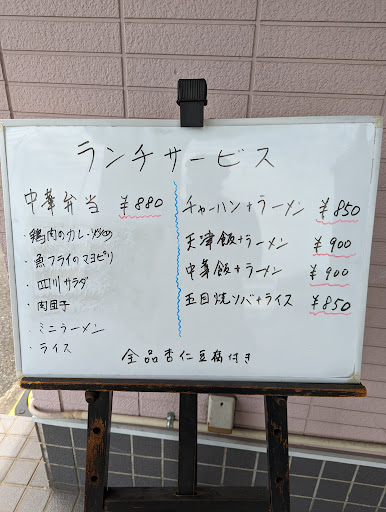 ランチサービス
中華弁当 ¥880
・鶏肉のカレー炒め
・魚フライのマヨピリ
・四川サラダ
・肉団子
・ミニラーメン
・ライス
チャーハン+ラーメン ¥850
天津飯+ラーメン ¥900
中華飯+ラーメン ¥900
五目焼ソバ+ライス ¥850
全品杏仁豆腐付き